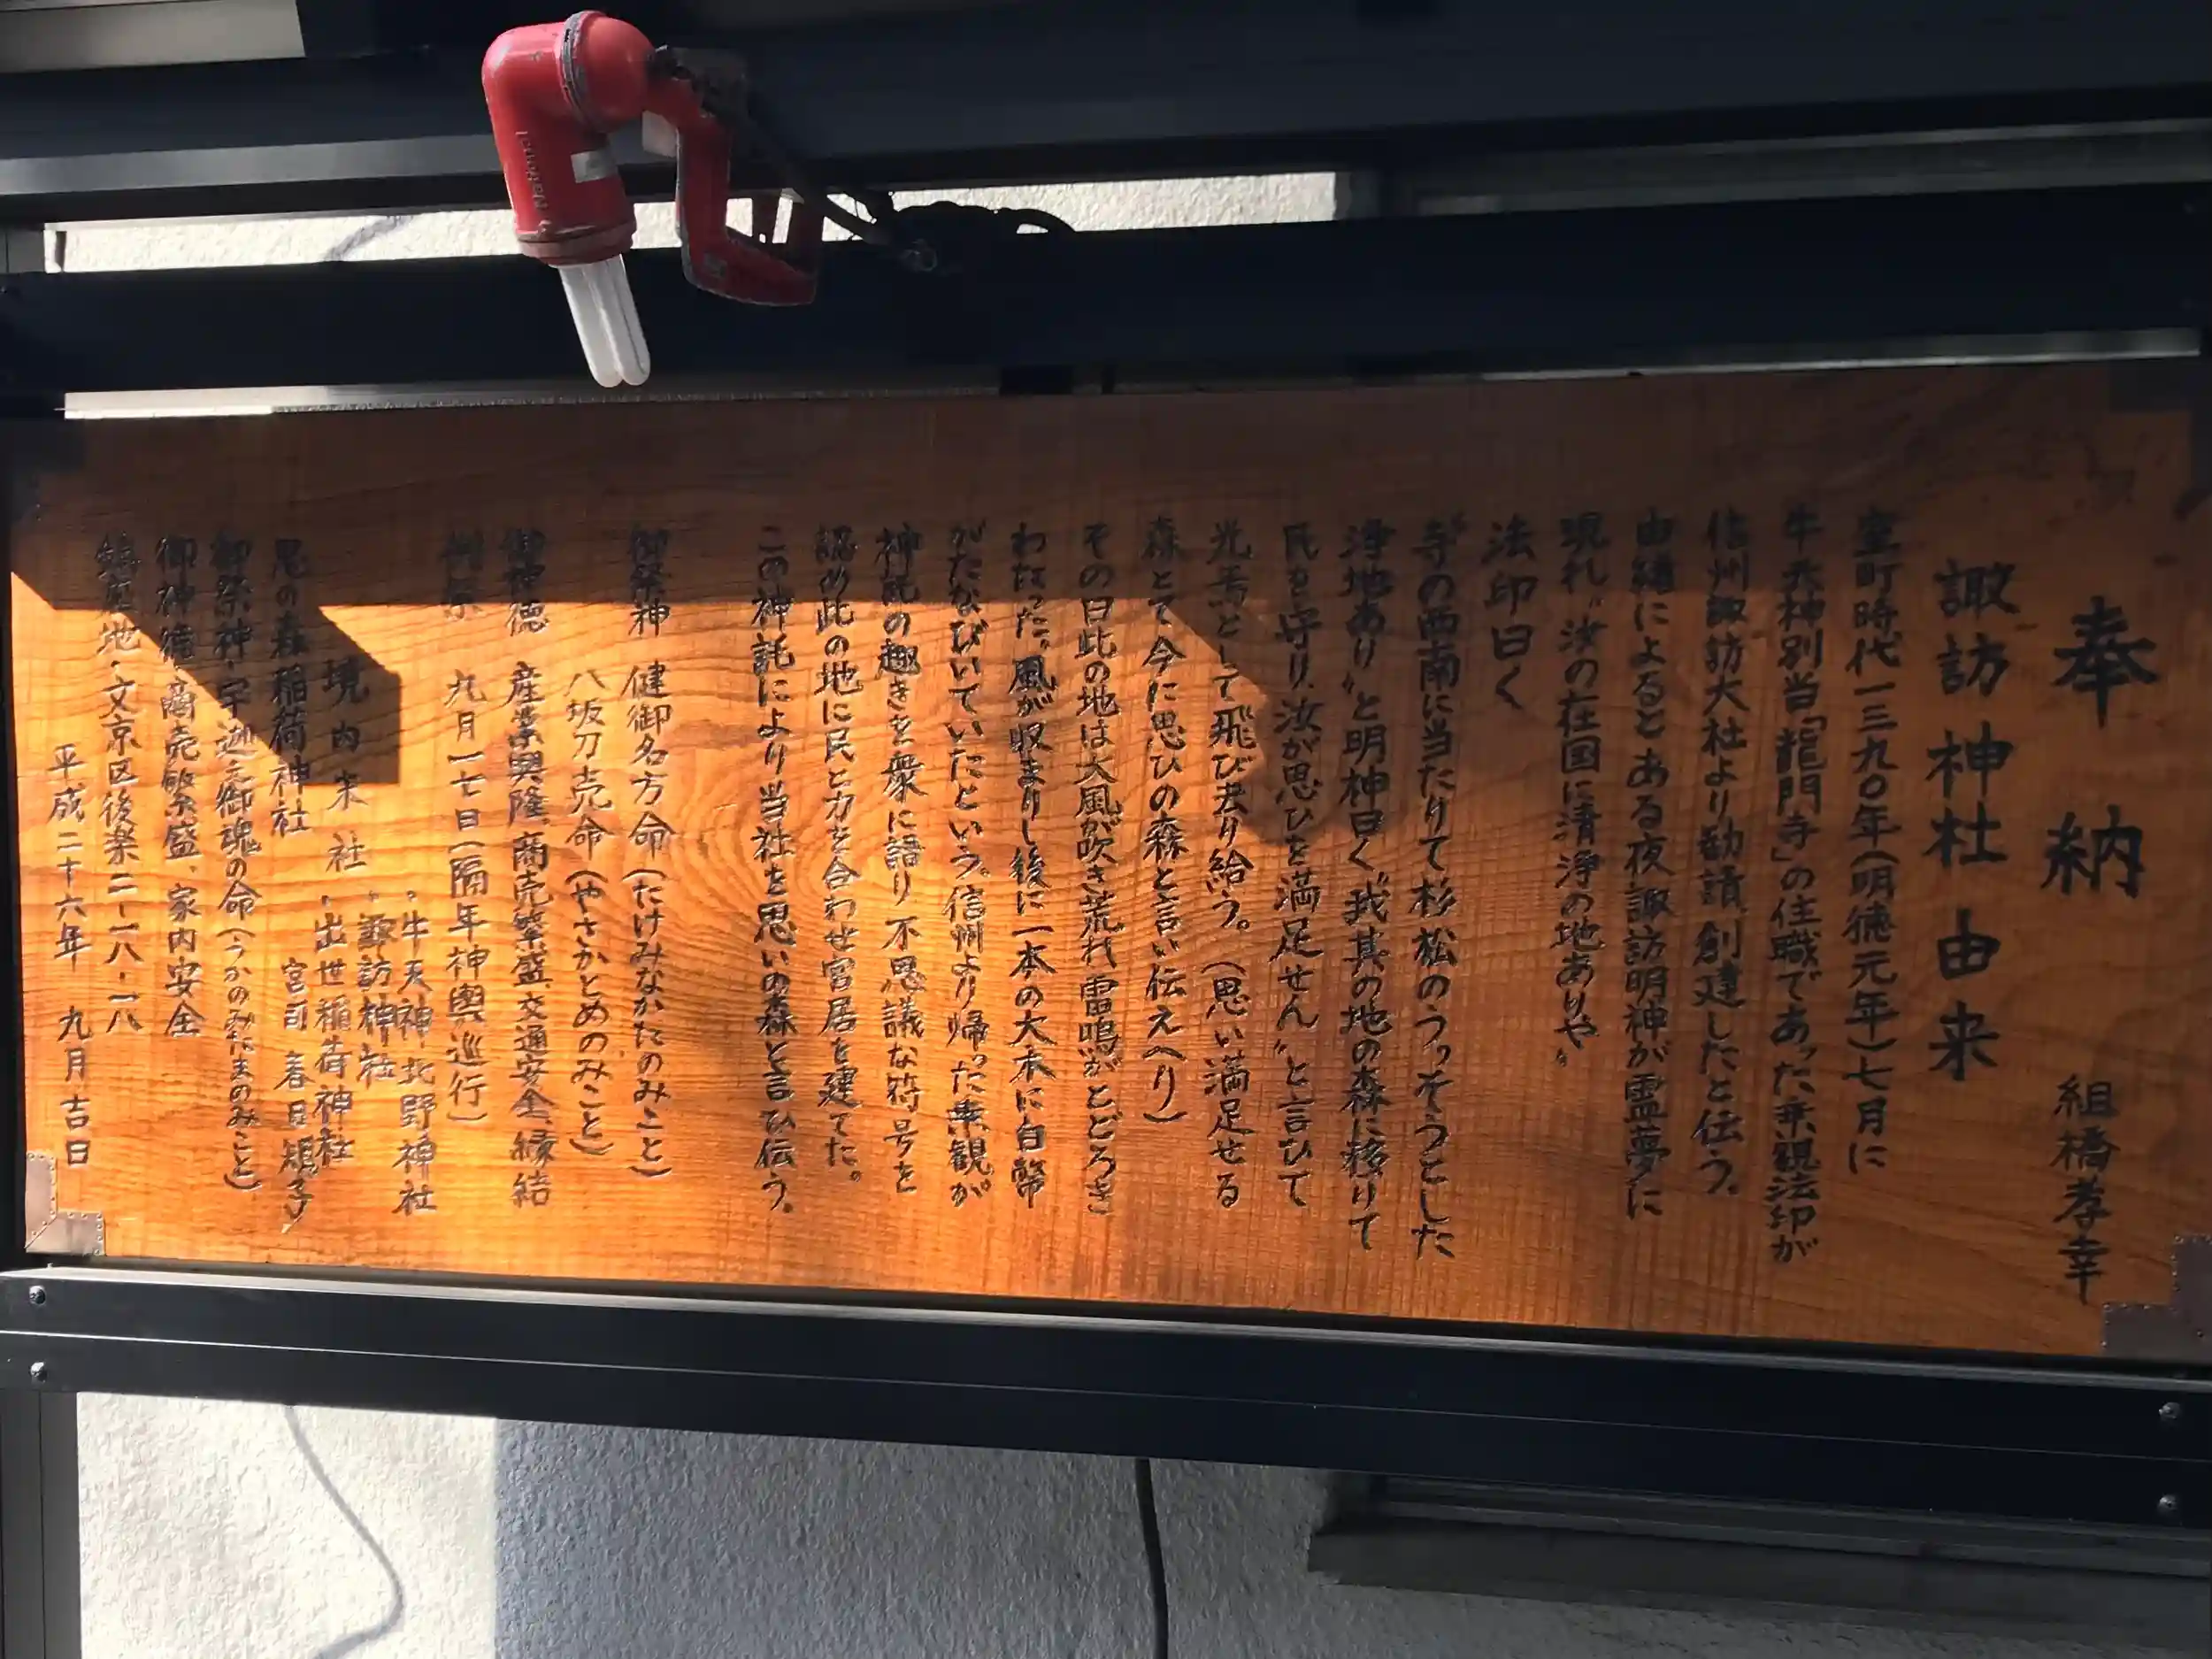 奉納 組橋孝幸
諏訪神社由来
室町時代一三九〇年(明徳元年)七月に
牛天神別当「龍門寺」の住職であった乗観法印が
信州諏訪大社より勧請、創建したと伝う。
由緒によるとある夜諏訪明神が霊夢に
現れ〝汝の在国に清浄の地ありや〟
法印曰く
寺の西南に当たりて杉松のうっそうとした
浄地あり〟と明神曰く〝我其の地の森に移りて
民を守り、汝が思ひを満足せん〟と言ひて
光馬として飛び去り給う。(思い満足せる
森とて今に思ひの森と言い伝えへり)
その日此の地は大風が吹き荒れ雷鳴がとどろき
わたった。風が収まりし後に一本の大木に白幣
がたなびいていたという。信州より帰った乗観が
神託の趣きを衆に語り不思議な符号を
認め此の地に民と力を合わせ宮居を建てた。
この神託により当社を思いの森と言ひ伝う。
御祭神 健御名方命(たけみなかたのみこと)
八坂刀売命(やさかとめのみこと)
御神徳 産業興隆、商売繁盛、交通安全、縁結
例祭 九月一七日(隔年神輿巡行)
・牛天神北野神社
・諏訪神社
境内末社 ・出世稲荷神社
思の森稲荷神社 宮司 春日
御祭神・宇迦之御魂の命(うかのみたまのみこと)
御神徳・商売繁盛、家内安全
鎮座地・文京区後楽二-一八-一八
平成二十六年 九月吉日
National